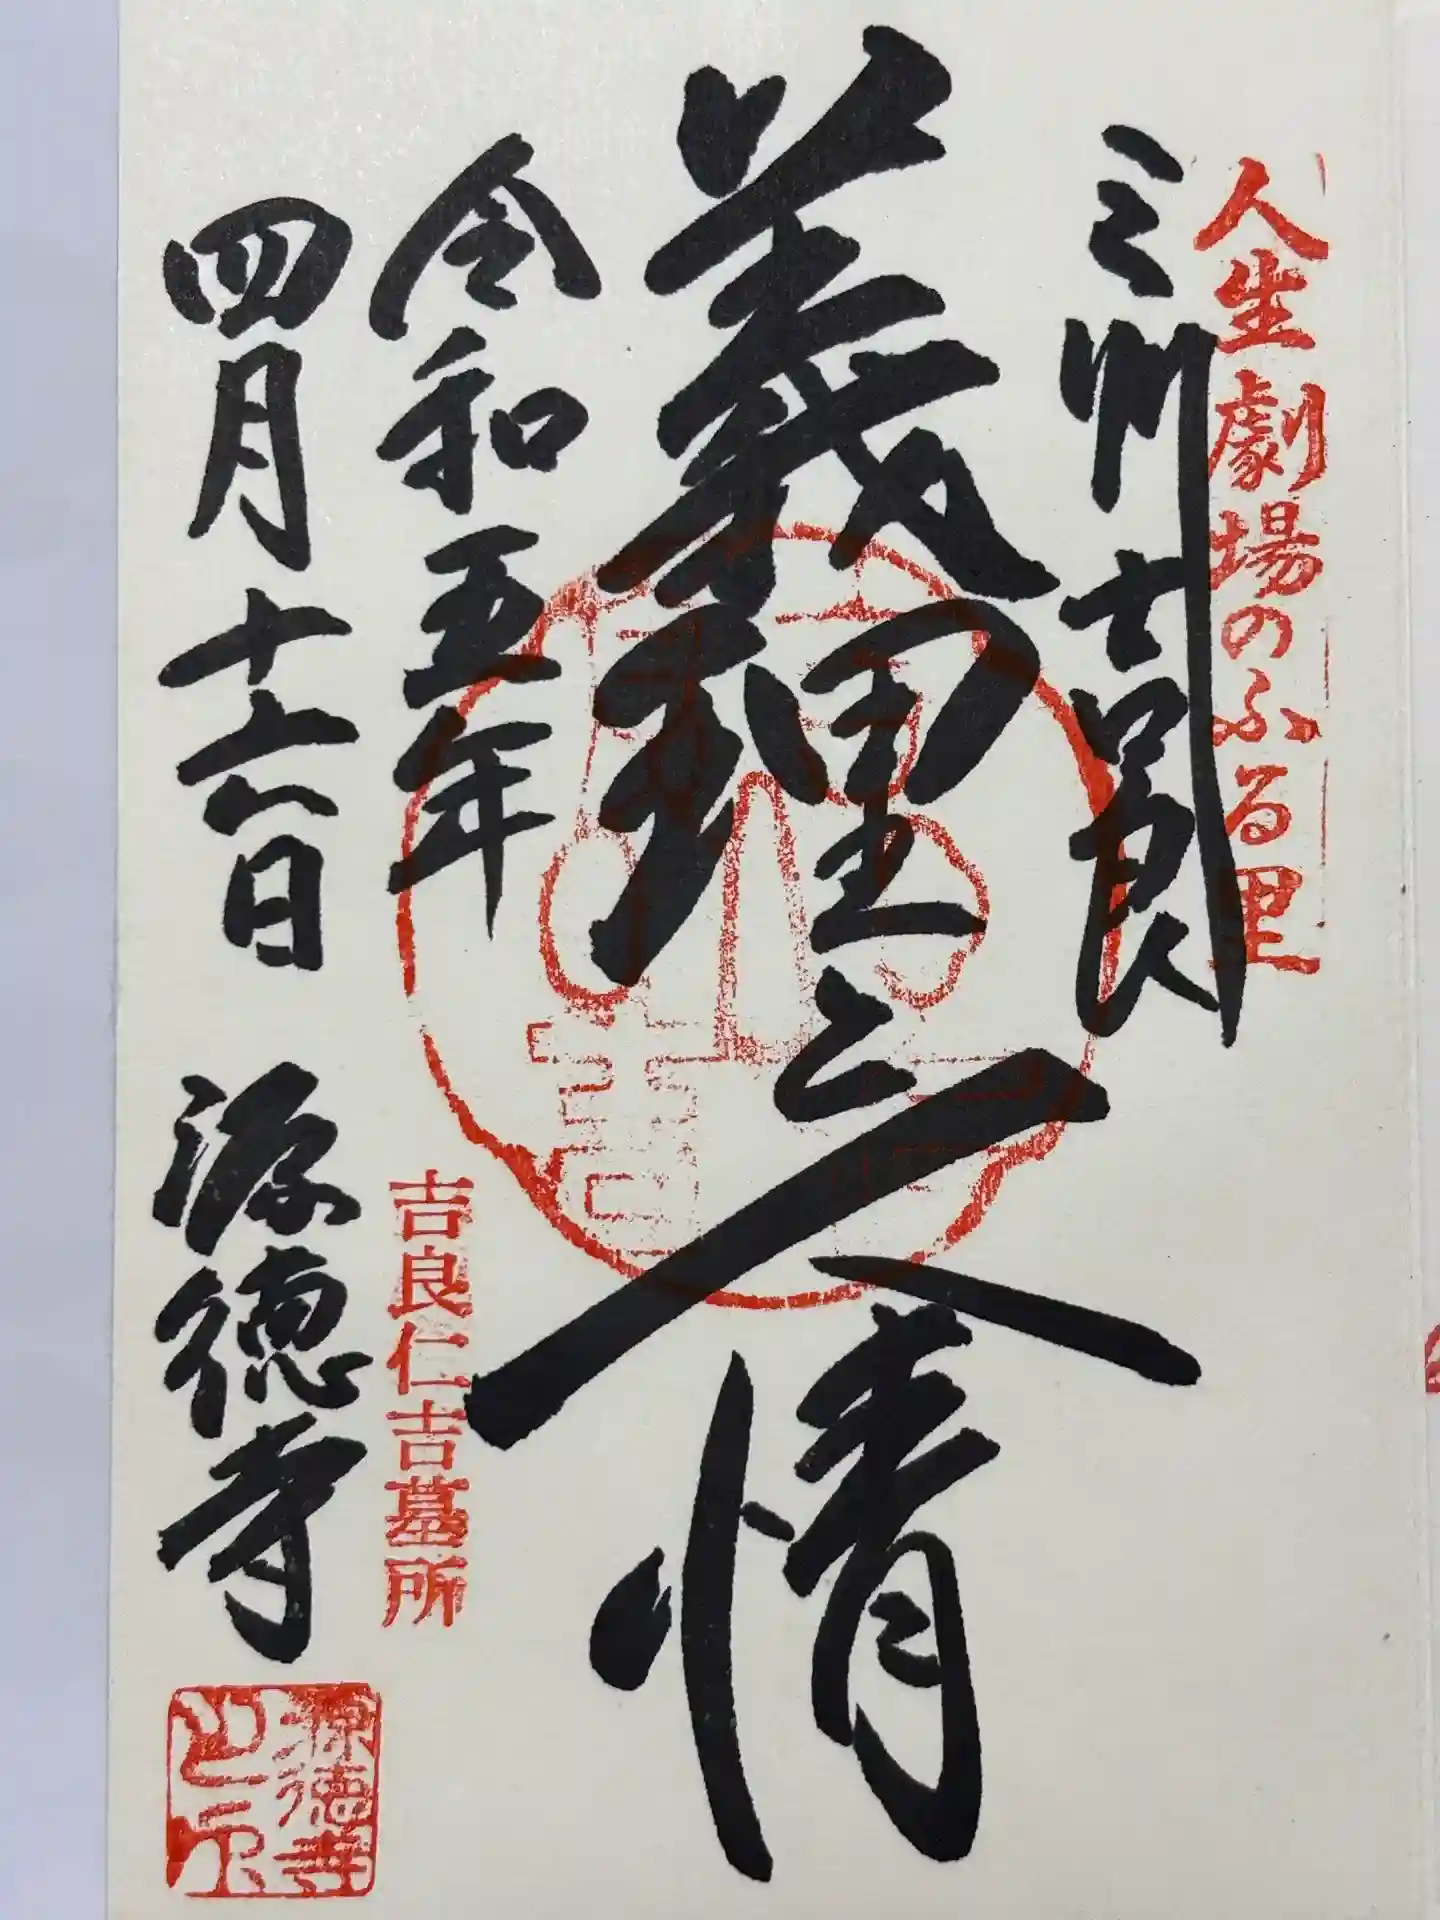 人生劇場のふる里
三州吉良
義理と人情
令和五年
四月十六日 源徳寺
吉良仁吉墓所
源徳寺之印